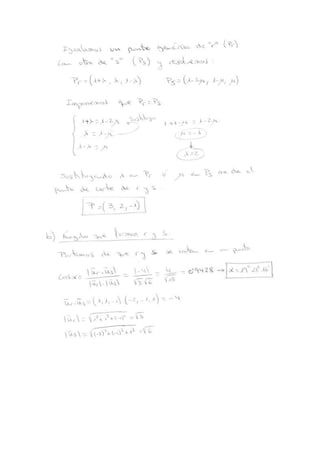 Igualamos un punto genérico de "r" (Pr)
con otro de "s" (Ps) y resolvemos:
Pr = (1+λ, λ, 1-λ) Ps = (1-2μ, 1-μ, μ)
Imponemos que Pr = Ps
1+λ = 1-2μ Sustituyo 1+1-μ = 1-2μ
λ = 1-μ μ = -1
1-λ = μ λ = 2
Sustituyendo λ en Pr y μ en Ps me da el
punto de corte de r y s.
P = (3, 2, -1)
b) Ángulo que forman r y s.
Partimos de que r y s se cortan en un punto
cos α = |ūr·ūs| / |ūr|·|ūs| = |-4| / √3·√6 = 4 / √18 = 0'9428 → α = 19° 28' 16"
ūr·ūs = (1,1,-1)·(-2,-1,1) = -4
|ūr| = √1²+1²+(-1)² = √3
|ūs| = √(-2)²+(-1)²+1² = √6